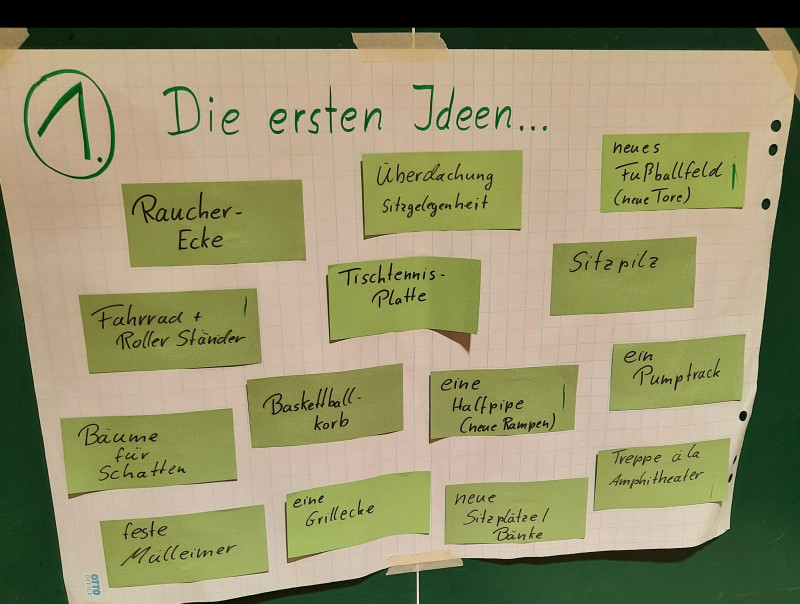 1.
Die ersten Ideen...
Raucher-
Ecke
Überdachung
Sitzgelegenheit
neues
Fußballfeld
(neue Tore)
Fahrrad +
Roller Ständer
Tischtennis-
Platte
Sitzpilz
Bäume
für
Schatten
Baskettball-
korb
eine
Halfpipe
(neue Rampen)
ein
Pumptrack
feste
Mülleimer
eine
Grillecke
neue
Sitzplätze/
Bänke
Treppe á la
Amphitheater
OTTO
OFFICE